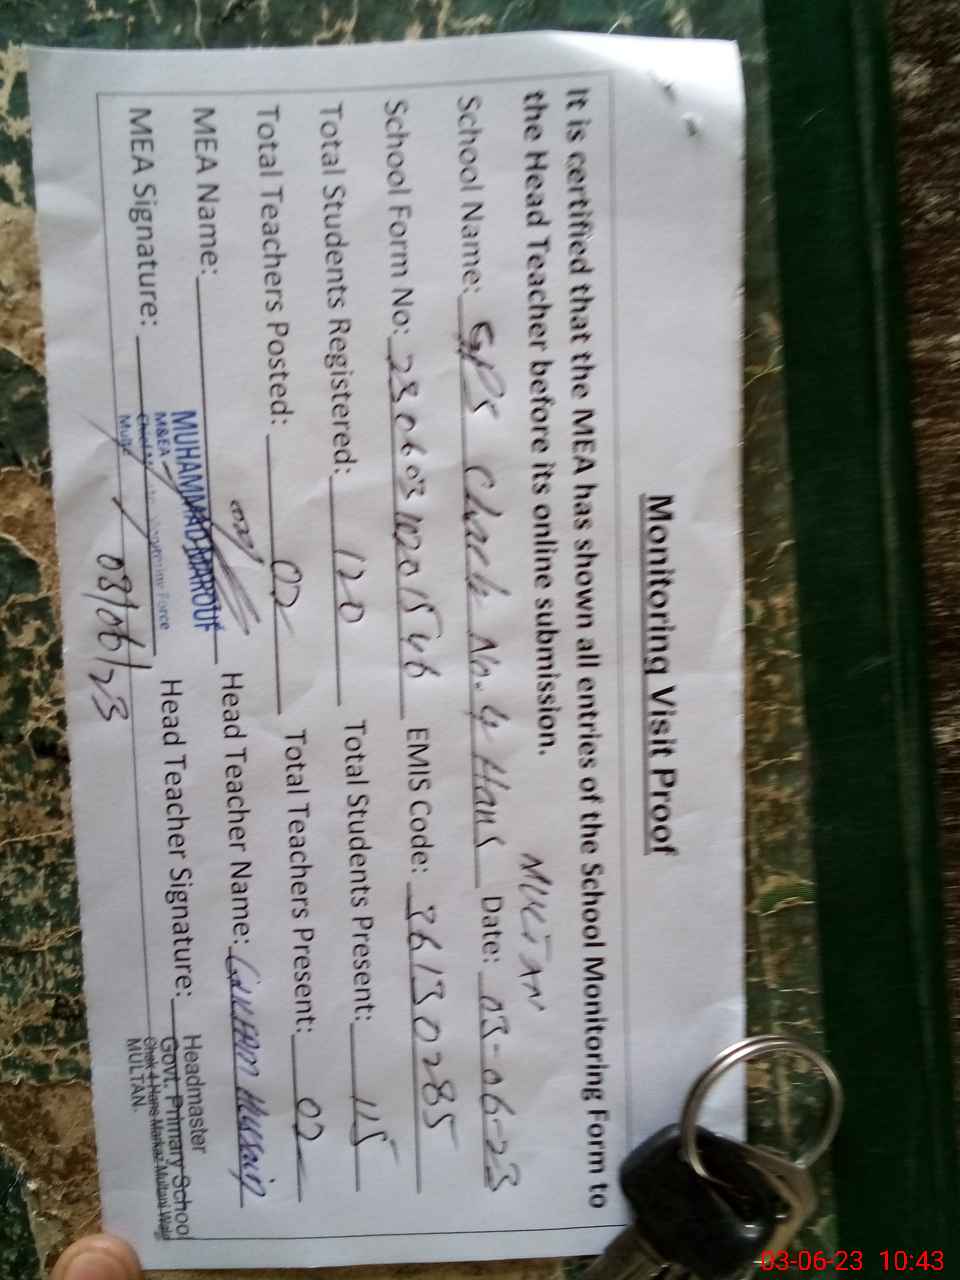 Monitoring Visit Proof
It is certified that the MEA has shown all entries of the School Monitoring Form to
the Head Teacher before its online submission.
MULTAN
School Name: GPS Chack No. 4 Hans Date: 03-06-23
School Form No: EMIS Code: 36130285
Total Students Registered: 120 Total Students Present: 115
Total Teachers Posted: 02 Total Teachers Present: 02
MEA Name: MUHAMMAD MAROUF Head Teacher Name: Hussain
M&EA Monitoring Force
MEA Signature: Head Teacher Signature:
03/06/23
Headmaster
Govt. Primary School
Chak 4 Hans Markaz Multani Wala
MULTAN.
03-06-23 10:43